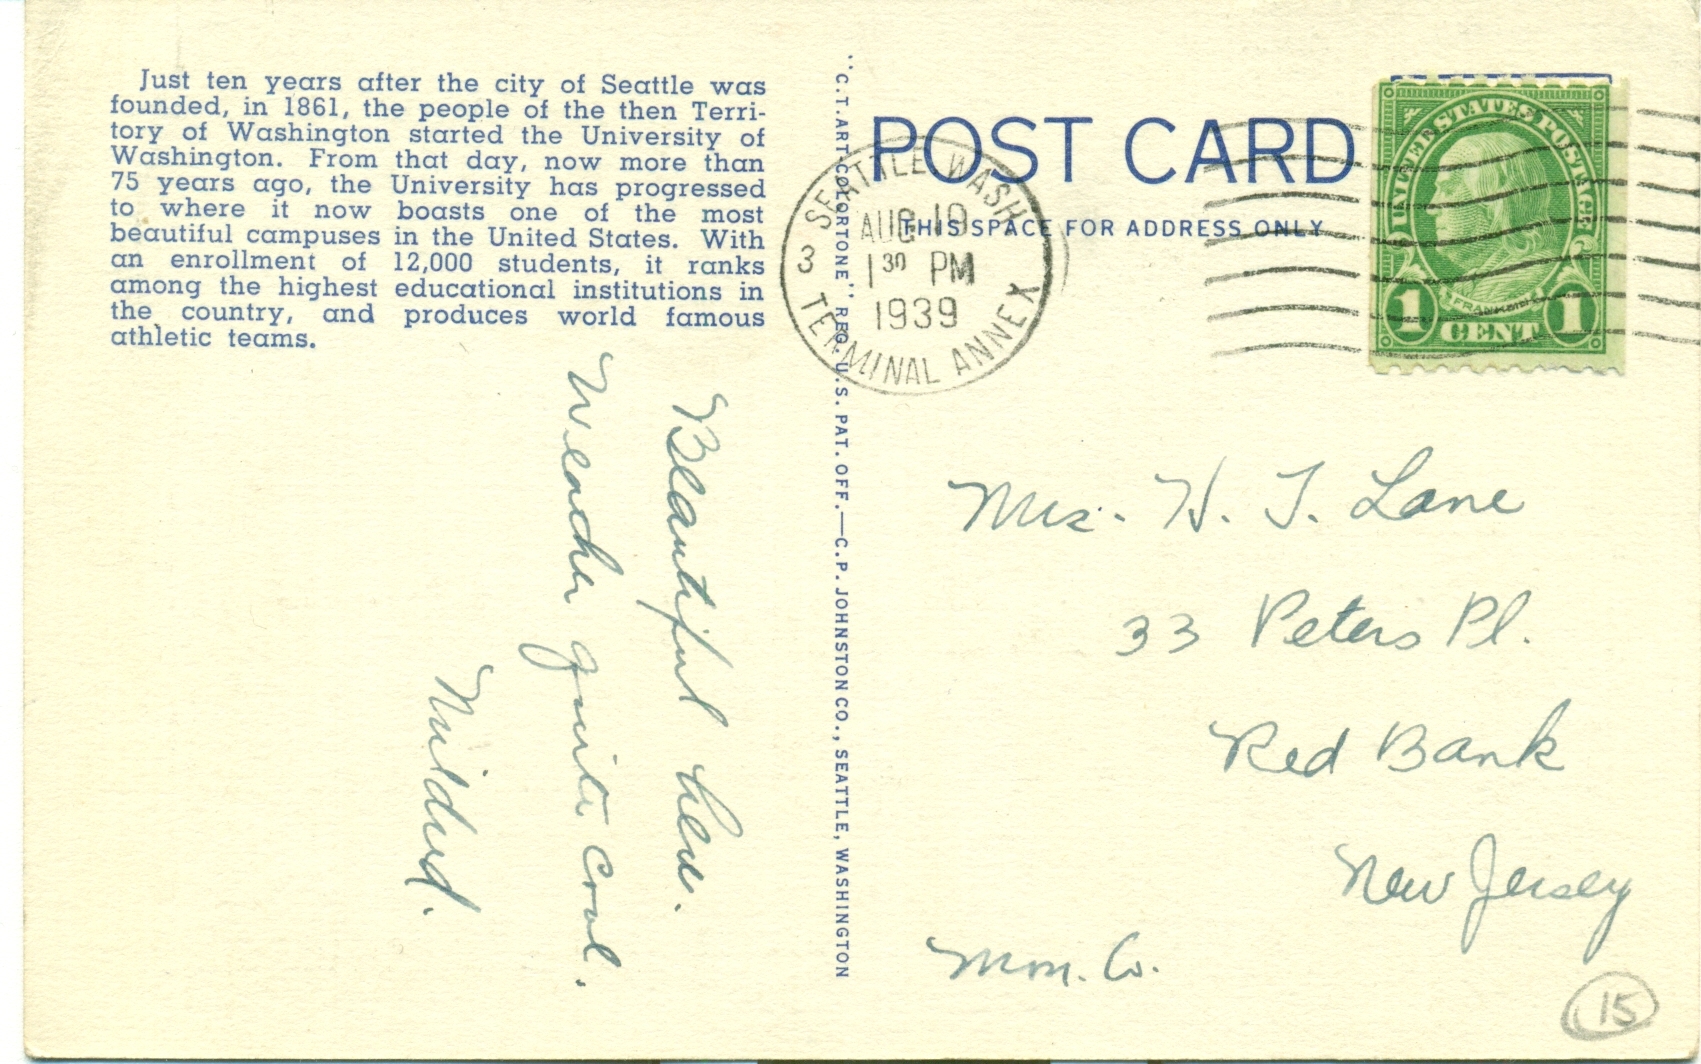 Just ten years after the city of Seattle was
founded, in 1861, the people of the then Terri-
tory of Washington started the University of
Washington. From that day, now more than
75 years ago, the University has progressed
to where it now boasts one of the most
beautiful campuses in the United States. With
an enrollment of 12,000 students, it ranks
among the highest educational institutions in
the country, and produces world famous
athletic teams.
Beautiful here.
Weather quite cool.
Mildred.
"C.T. ART COLORTONE" REG. U.S. PAT. OFF.—C. P. JOHNSTON CO., SEATTLE, WASHINGTON
POST CARD
THIS SPACE FOR ADDRESS ONLY
SEATTLE WASH
3
AUG 19
1 30 PM
1939
TERMINAL ANNEX
UNITED STATES POSTAGE
FRANKLIN
1 CENT 1
Mrs. H. T. Lane
33 Peters Pl.
Red Bank
New Jersey
Mon. Co.
15